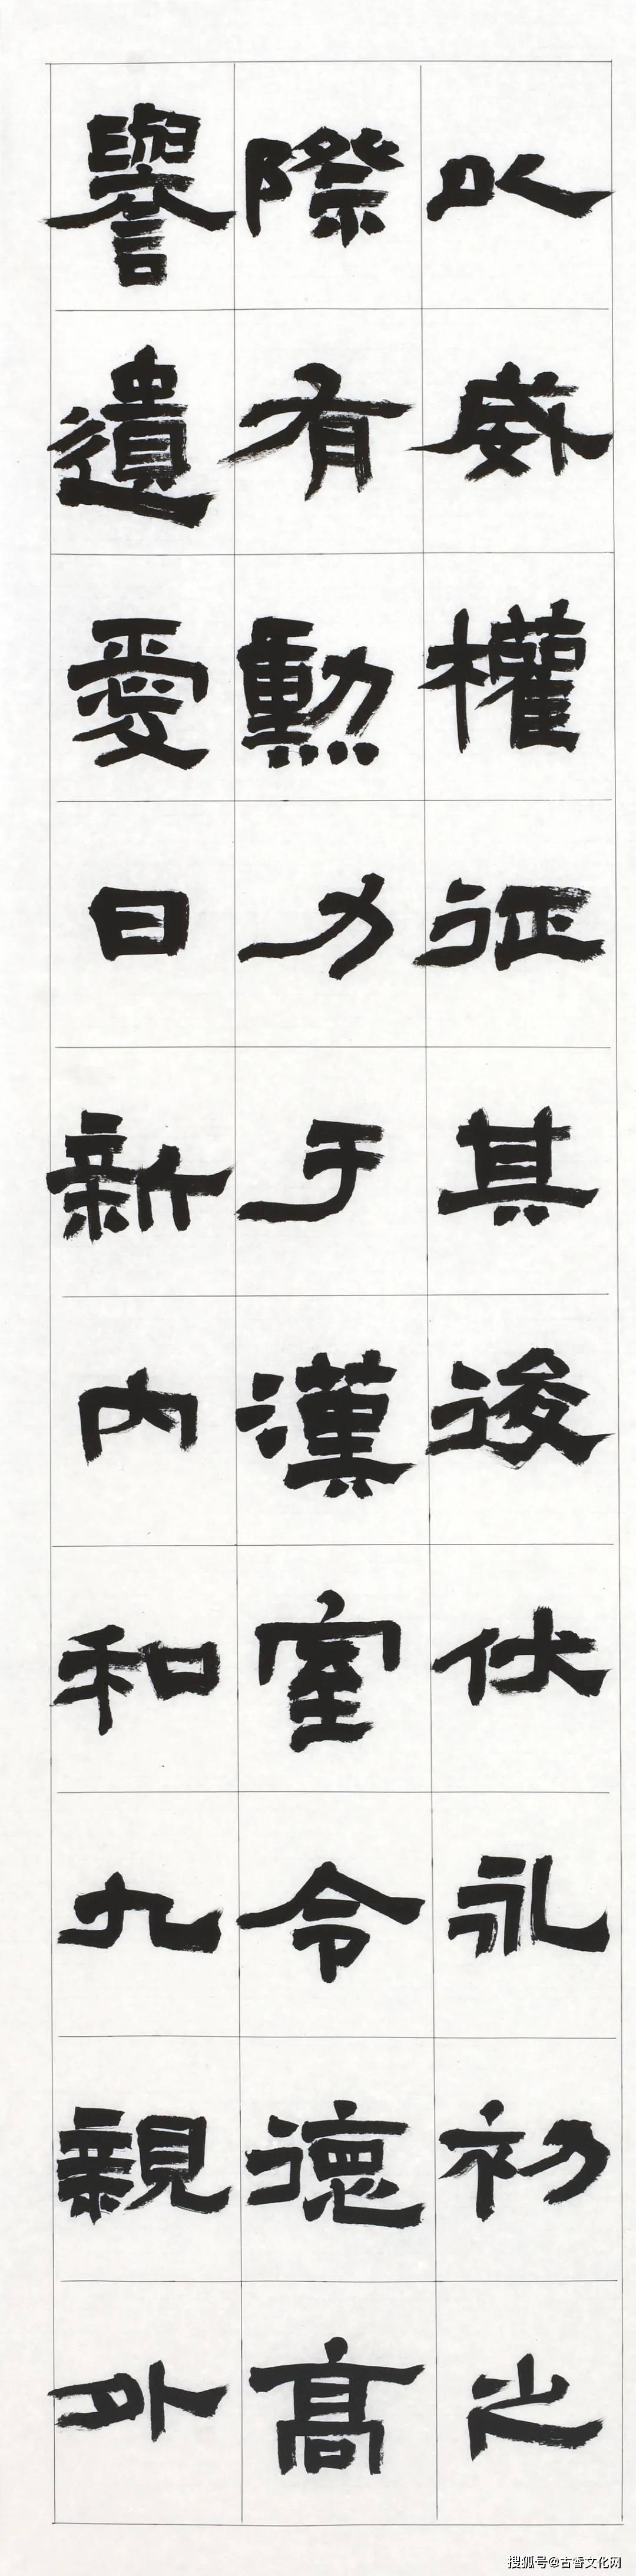 以威權征其後伏永初之
際有勳力于漢室令德高
譽遺愛日新內和九親外
搜狐号@古香文化网